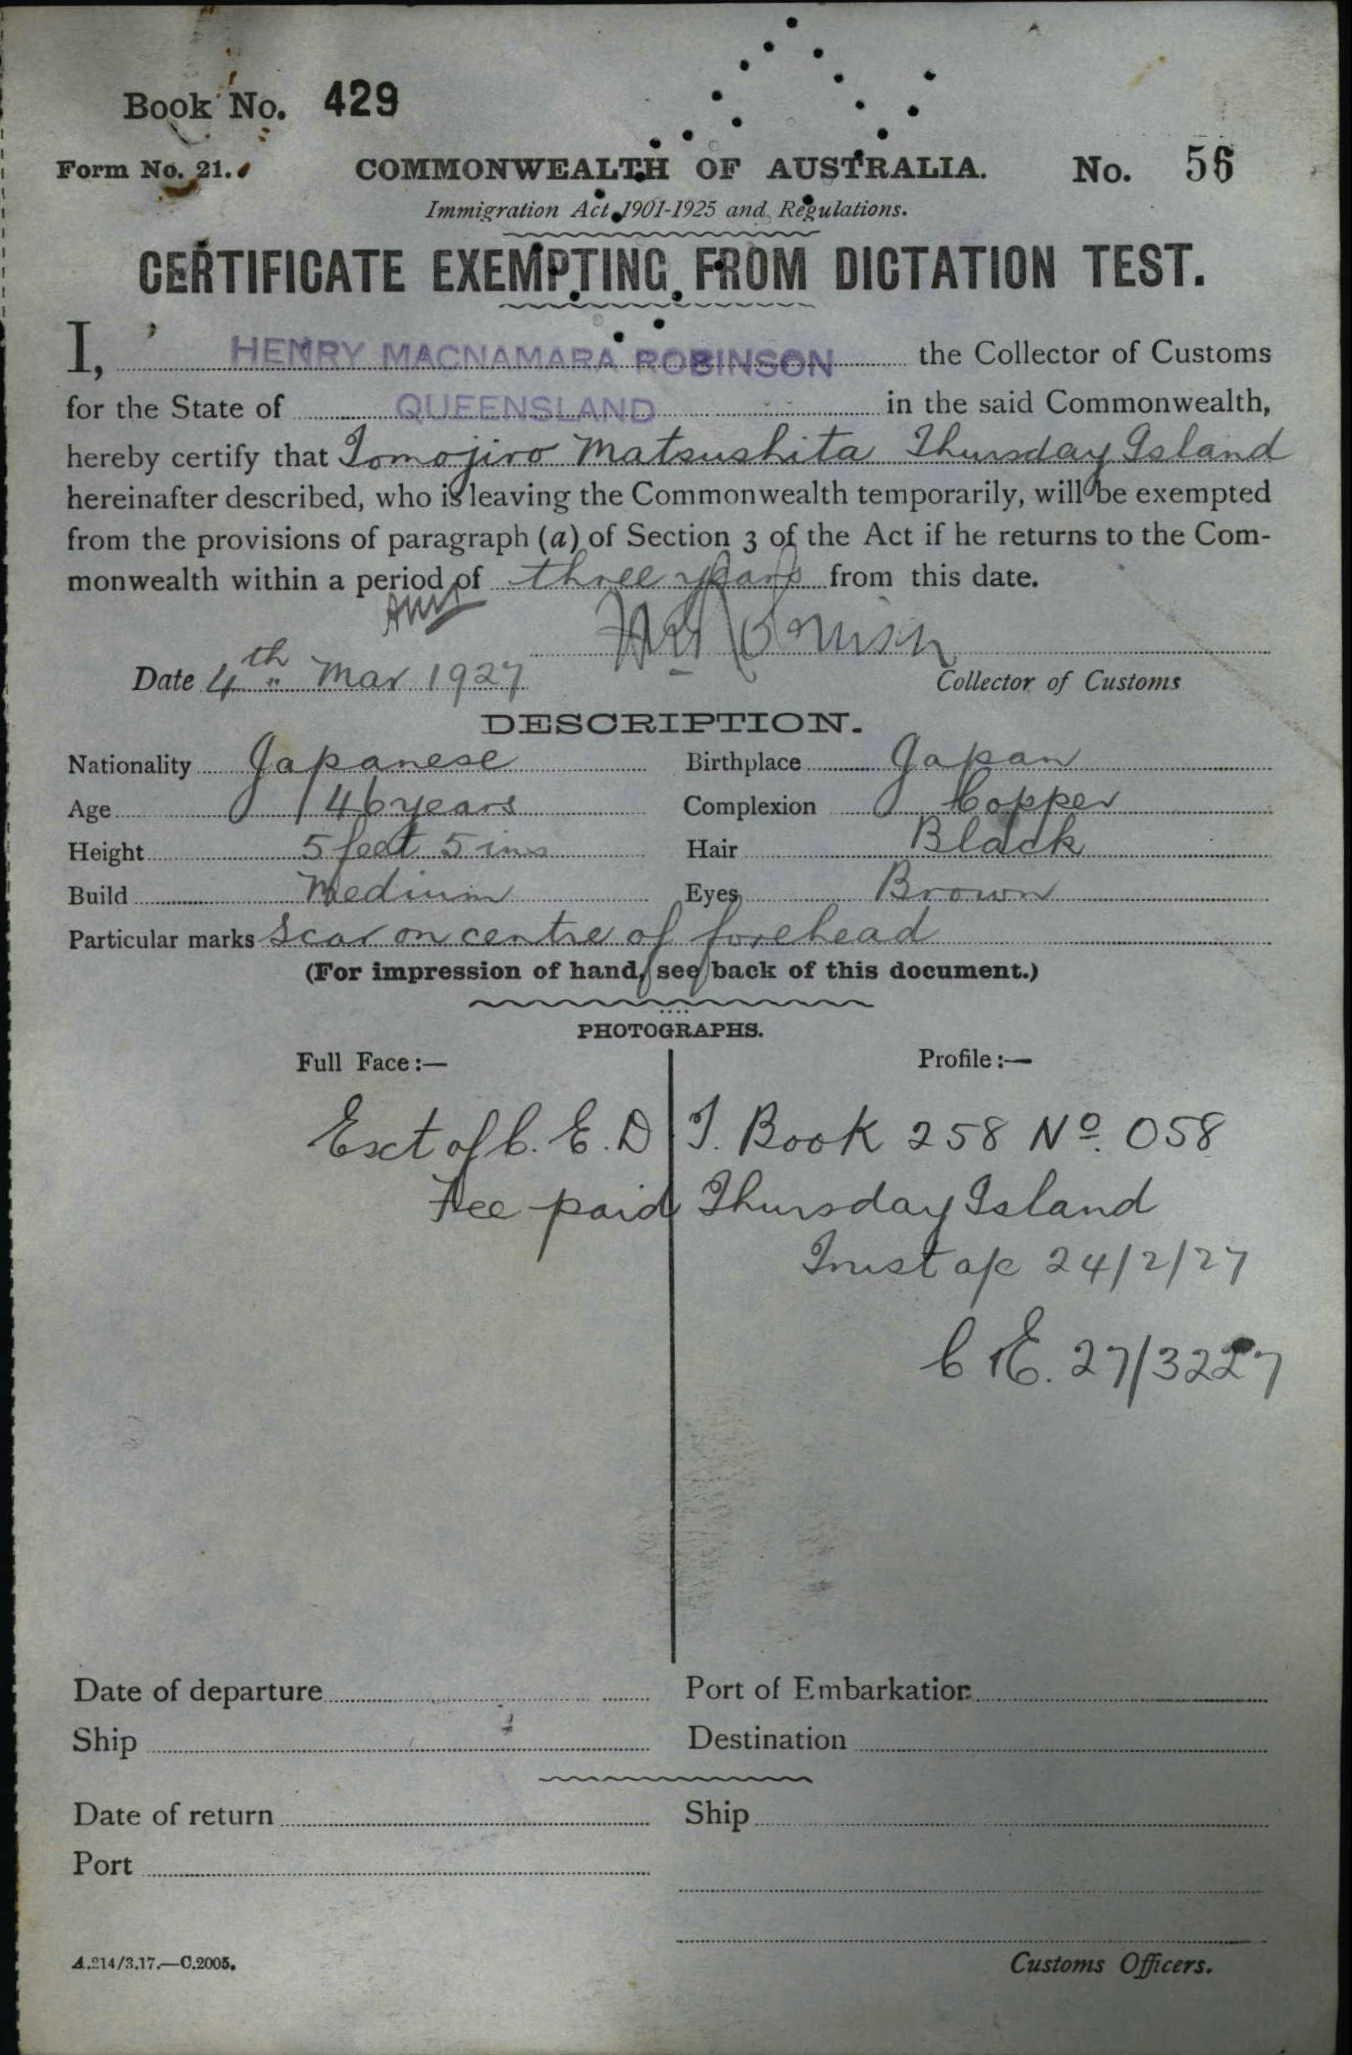 Book No. 429
Form No. 21. COMMONWEALTH OF AUSTRALIA. No. 56
Immigration Act 1901-1925 and Regulations.
CERTIFICATE EXEMPTING FROM DICTATION TEST.
I, HENRY MACNAMARA ROBINSON the Collector of Customs
for the State of QUEENSLAND in the said Commonwealth,
hereby certify that Tomojiro Matsushita Thursday Island
hereinafter described, who is leaving the Commonwealth temporarily, will be exempted
from the provisions of paragraph (a) of Section 3 of the Act if he returns to the Com-
monwealth within a period of three years from this date.
Date 4th Mar 1927 Collector of Customs
DESCRIPTION.
Nationality Japanese Birthplace Japan
Age 46 years Complexion Copper
Height 5 feet 5 ins Hair Black
Build Medium Eyes Brown
Particular marks Scar on centre of forehead
(For impression of hand, see back of this document.)
PHOTOGRAPHS.
Full Face:— Profile:—
Exct of C. E. D T. Book 258 No. 058
Fee paid Thursday Island
Trust a/c 24/2/27
C & E. 27/3227
Date of departure Port of Embarkation
Ship Destination
Date of return Ship
Port
A.214/3.17.—C.2005. Customs Officers.